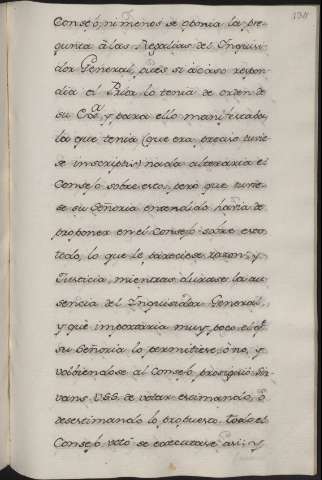 Consejo, ni menos se oponia la pre-
gunta â las Regalias del Inquisi-
dor General, pues si acaso respon-
dia el Prior lo tenia de orden de
su Exª. y para ello manifestaba
la que tenia (que era preciso tuvie-
se inscriptis) nada alteraria el
Consejo sobre esto, pero que tuvie-
se su Señoria entendido havia de
proponer en el Consejo sobre esto
todo, lo que le pareciese razon, y
Justicia, mientras durase la au-
sencia del Inquisidor General,
y que importaria muy poco el qᵉ.
su Señoria lo permitiese, ò no, y
volbiendose al Consejo prosiguió Sir-
vanse V.S.S. de votar estimando, ò
desestimando lo propuesto. Todo el
Consejo votó se executase asi; y